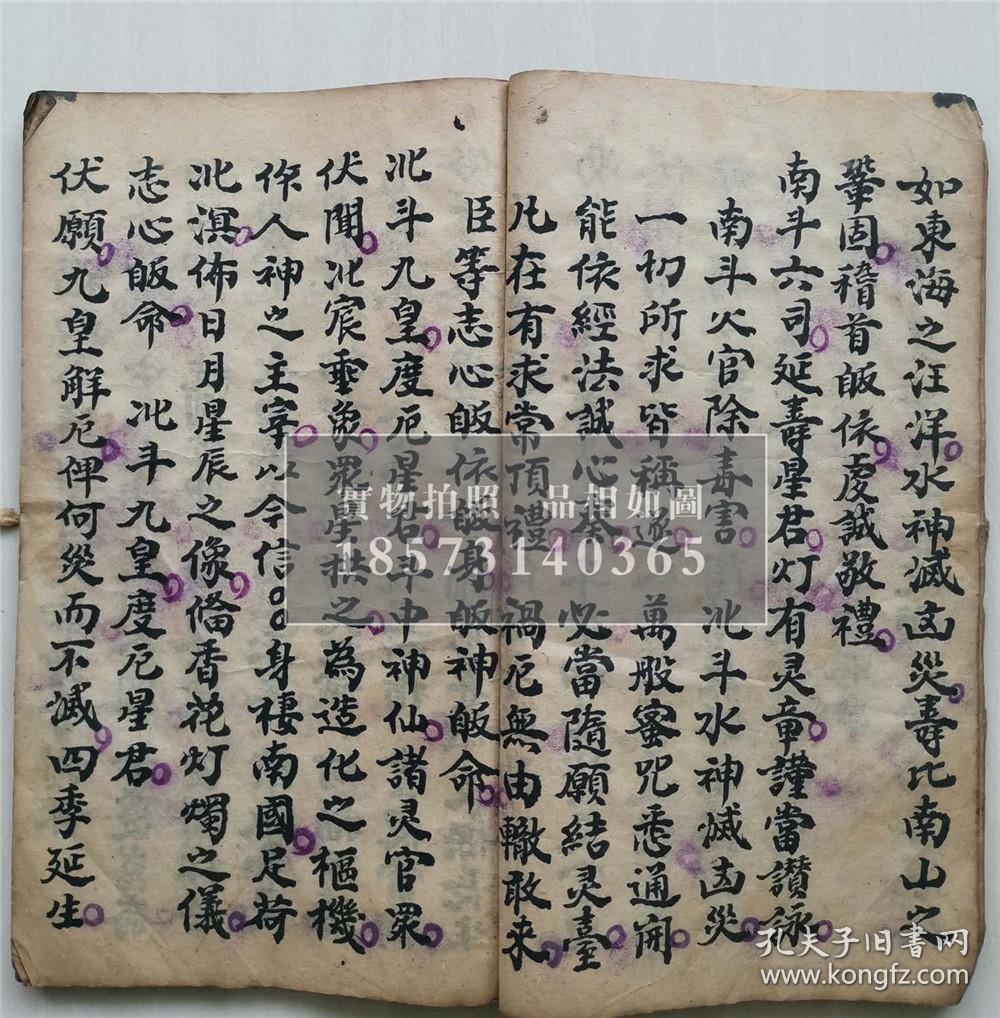 如東海之汪洋水神滅凶災壽比南山之
鞏固稽首皈依虔誠敬禮
南斗六司延壽星君灯有灵章謹當讚詠
南斗火官除毒害 北斗水神滅凶災
一切所求皆稱遂 萬般蜜咒悉通開
能依經法誠心奏 必當随願結灵臺
凡在有求常頂禮 禍厄無由轍敢来
臣等志心皈依皈身皈神皈命
北斗九皇度厄星君斗中神仙諸灵官眾
伏聞北宸垂象眾星拱之為造化之樞機
作人神之主宰以今信〇〇身棲南國足荷
北溟佈日月星辰之像偹香花灯燭之儀
志心皈命 北斗九皇度厄星君
伏願九皇解厄俾何災而不滅四季延生
實物拍照 品相如圖
18573140365
孔夫子旧書网
www.kongfz.com